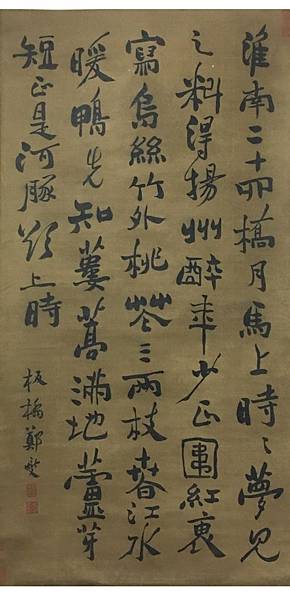 淮南二十四橋月馬上時〻夢見
之料得揚州醉年少正圍紅
寫烏絲竹外桃花三兩枝春江水
暖鴨先知蔞蒿滿地蘆芽
短正是河豚欲上時
板橋鄭燮